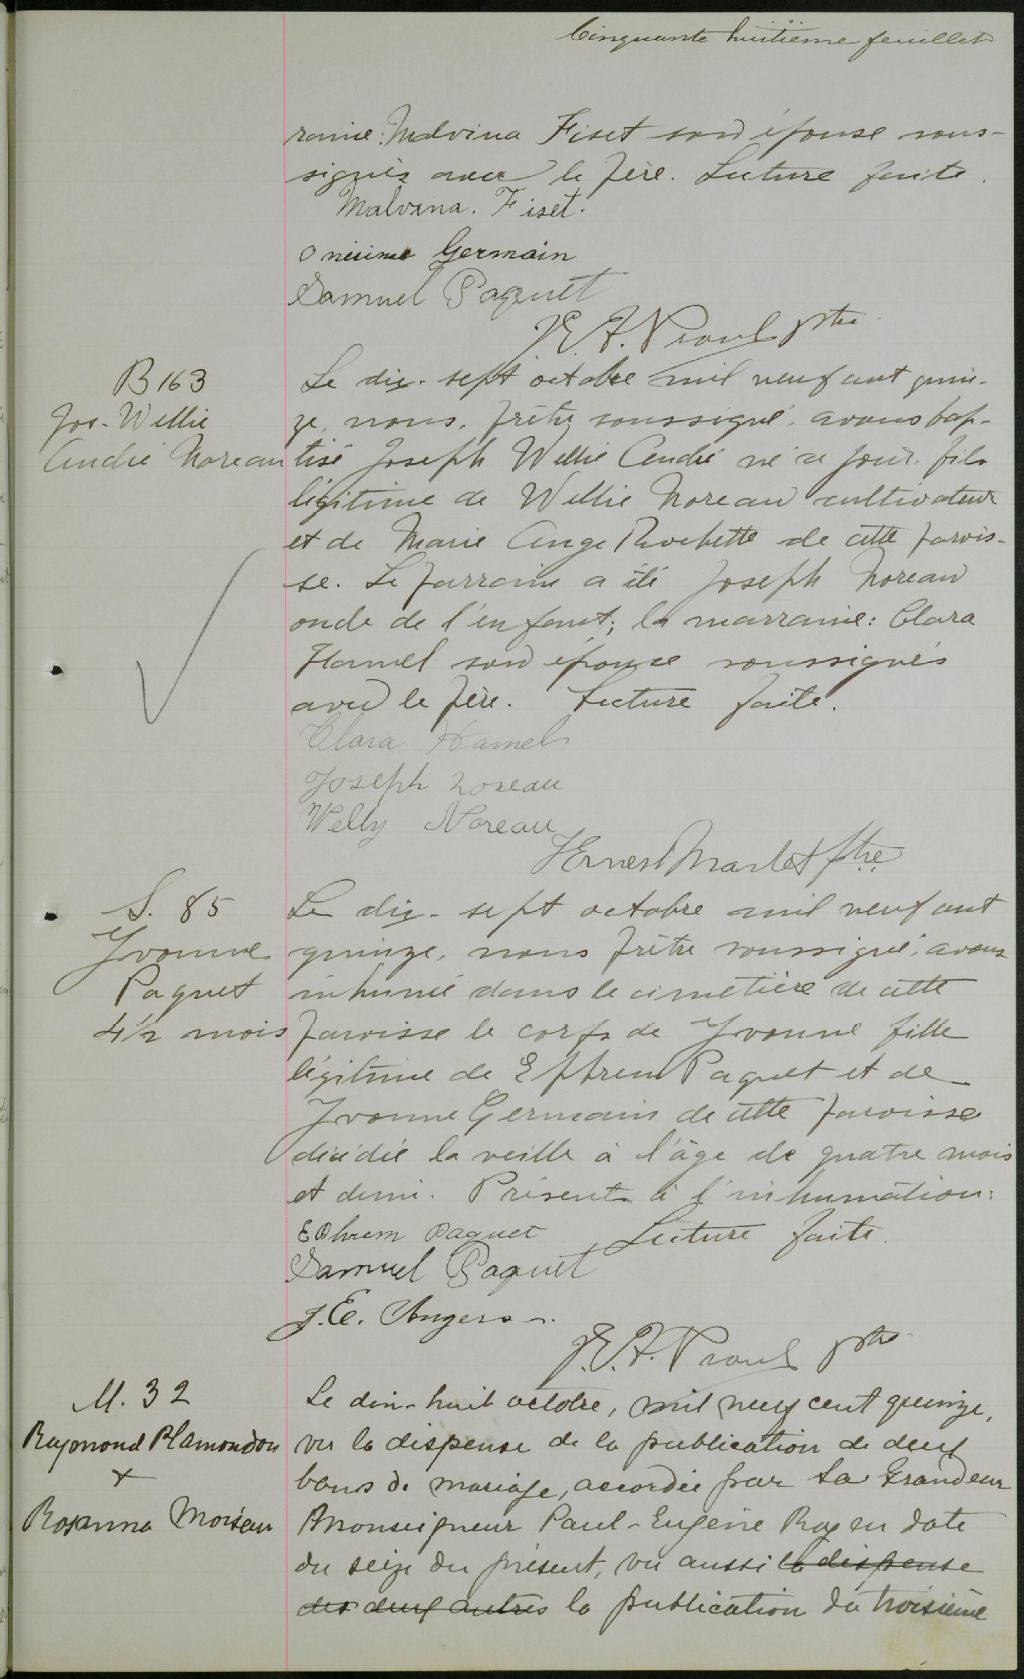 Cinquante huitième feuillet
raine: Malvina Fiset son épouse sous-
signés avec le père. Lecture faite.
Malvina. Fiset.
Onésime Germain
Samuel Paquet
J. E. A. Pfre ptre
B 163
Jos. Wellie
André Noreau
Le dix-sept octobre mil neuf cent quin-
ze, nous, prêtre soussigné, avons bap-
tisé Joseph Wellie André né ce jour, fils
légitime de Wellie Noreau cultivateur
et de Marie Ange Rochette de cette parois-
se. Le parrain a été Joseph Noreau
oncle de l'enfant; la marraine: Clara
Hamel son épouse soussignés
avec le père. Lecture faite.
Clara Hamel
Joseph Noreau
Welly Noreau
J Ernest ptre
S. 85
Yvonne
Paquet
4 1/2 mois
Le dix-sept octobre mil neuf cent
quinze, nous prêtre soussigné, avons
inhumé dans le cimetière de cette
paroisse le corps de Yvonne fille
légitime de Ephrem Paquet et de
Yvonne Germain de cette paroisse
décédée la veille à l'âge de quatre mois
et demi. Présents à l'inhumation:
Ephrem Paquet Lecture faite.
Samuel Paquet
J. E. Angers
J. E. A. ptre
M. 32
Raymond Plamondon
+
Rosanna Moisan
Le dix-huit octobre, mil neuf cent quinze,
vu la dispense de la publication de deux
bans de mariage, accordée par Sa Grandeur
Monseigneur Paul-Eugène Roy en date
du seize du présent, vu aussi la dispense
des deux autres la publication du troisième